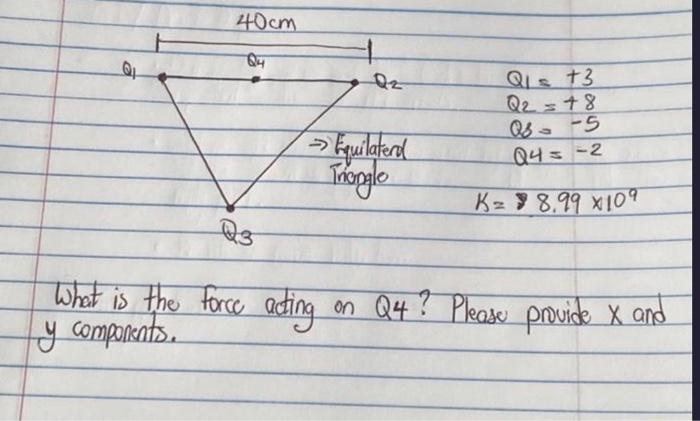 40cm
Q1
Q4
Q2
Q1 = +3
Q2 = +8
Q3 = -5
Q4 = -2
=> Equilateral
Triangle
K = 8.99 x10⁹
Q3
What is the force acting on Q4? Please provide x and
y components.